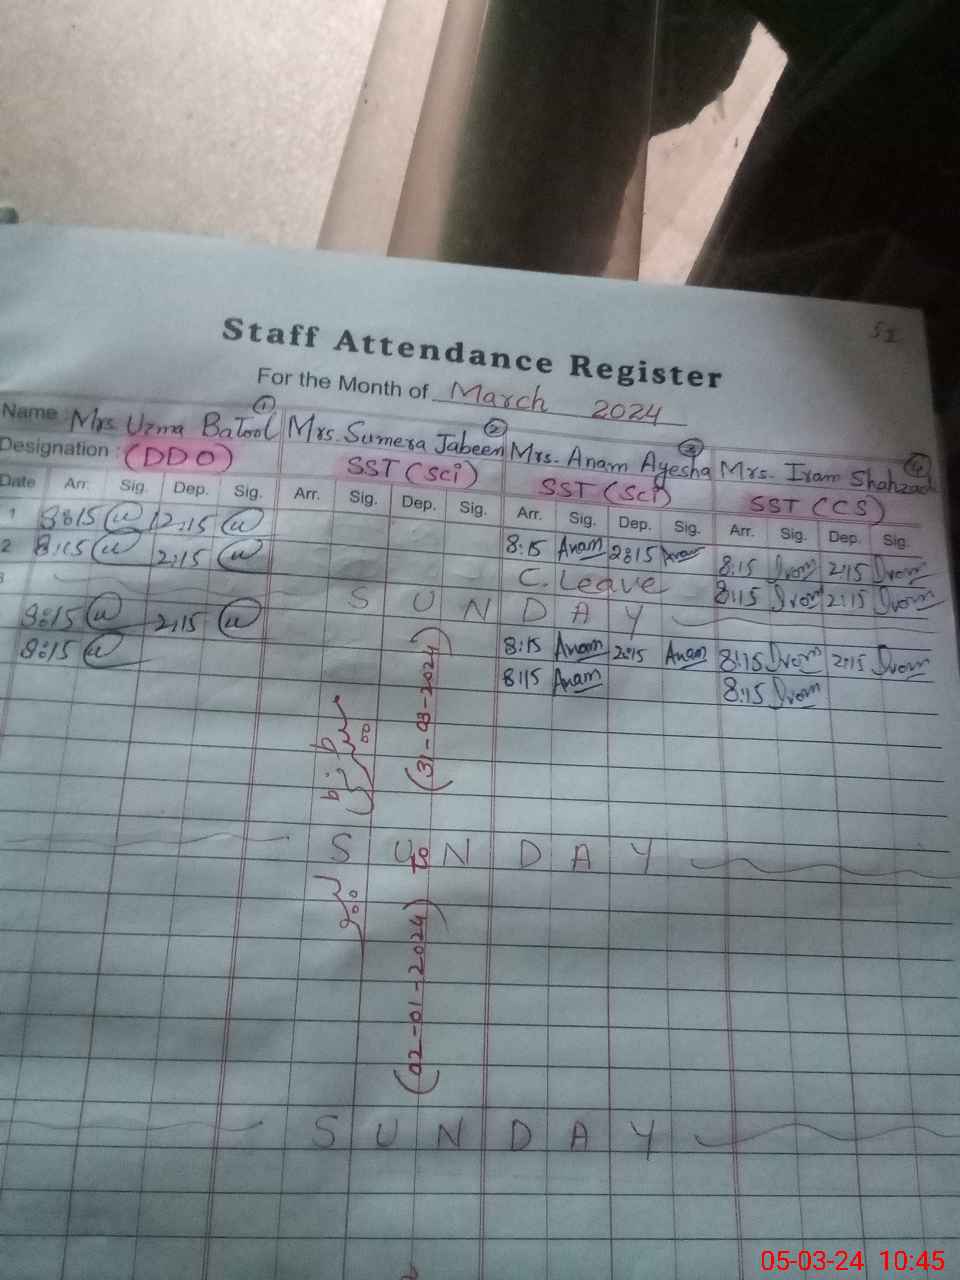 51
Staff Attendance Register
For the Month of March 2024
Name : Mrs. Uzma Batool 1 Mrs. Sumera Jabeen 2 Mrs. Anam Ayesha 3 Mrs. Iram Shahzad 4
Designation : (DDO) SST (Sci) SST (Sci) SST (CS)
Date Arr. Sig. Dep. Sig. Arr. Sig. Dep. Sig. Arr. Sig. Dep. Sig. Arr. Sig. Dep. Sig.
1 8:15 12:15 8:15 Anam 2:15 Anam 8:15 Irom 2:15 Irom
2 8:15 2:15 C. Leave 8:15 Irom 2:15 Irom
3 SUNDAY
8:15 2:15 8:15 Anam 2:15 Anam 8:15 Irom 2:15 Irom
8:15 8:15 Anam 8:15 Irom
(02-01-2024) to (31-03-2024)
SUNDAY
SUNDAY
05-03-24 10:45